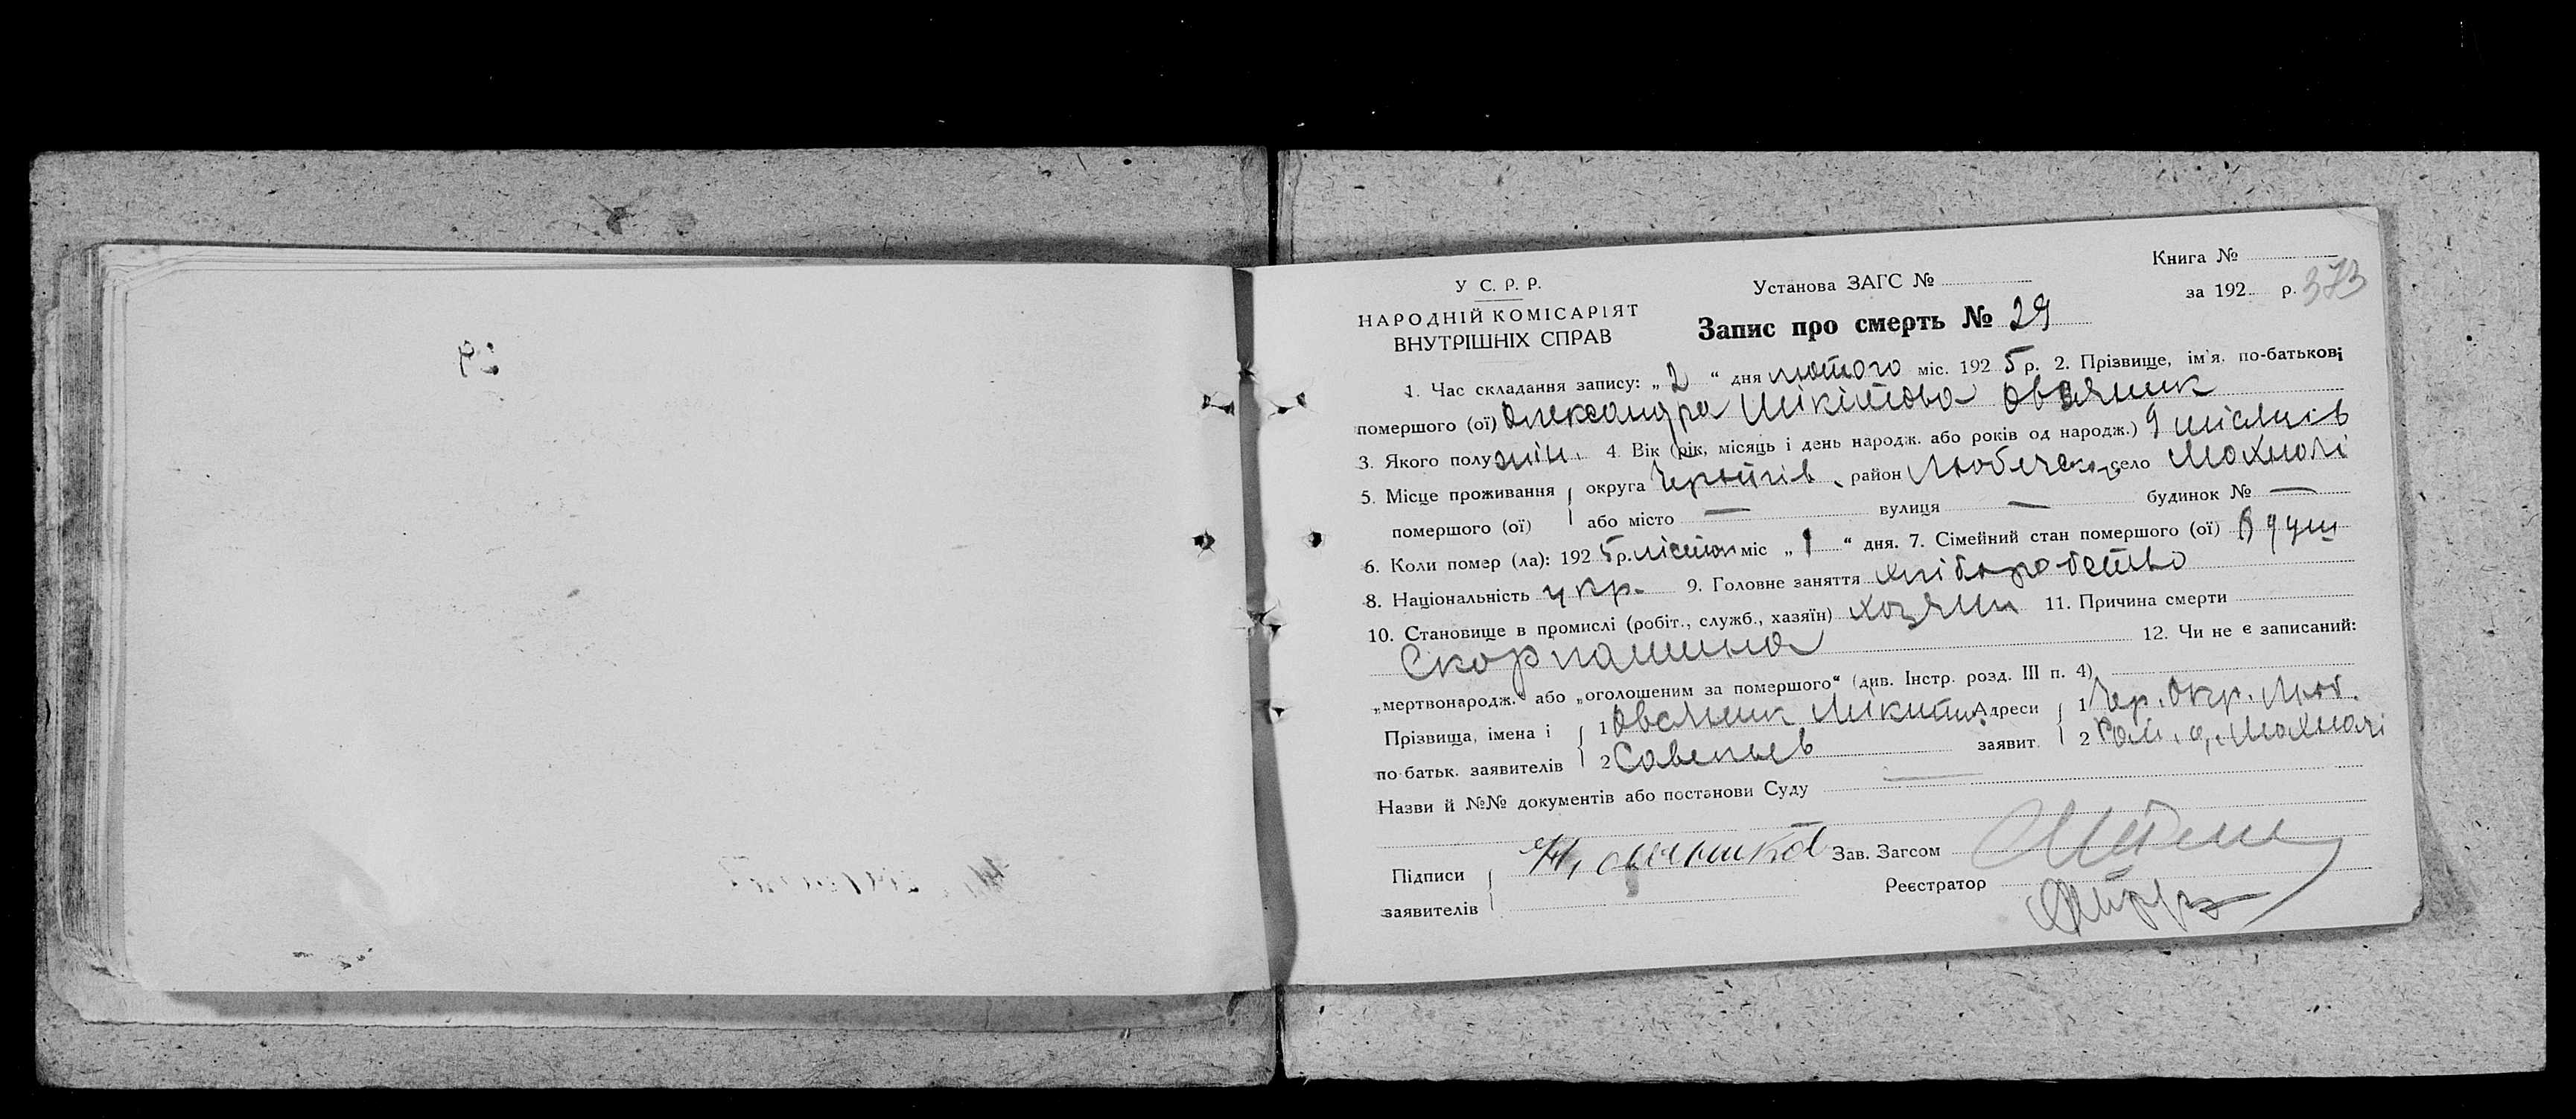 Книга №
У С. Р. Р.
Установа ЗАГС №
за 192 р. 373
НАРОДНІЙ КОМІСАРІЯТ
ВНУТРІШНІХ СПРАВ
Запис про смерть № 29
1. Час складання запису: „ 2 “ дня лютого міс. 192 5 р. 2. Прізвище, ім'я, по-батькові
померлого (ої) Олександра Микитова Овсяник
3. Якого полу жін. 4. Вік (рік, місяць і день народж. або років од народж.) 9 місяців
5. Місце проживання округа Чернігів район село Мохначі
помершого (ої) або місто — вулиця — будинок № —
6. Коли помер (ла): 192 5 р. міс „ 1 “ дня. 7. Сімейний стан помершого (ої) 8 душ
8. Національність укр. 9. Головне заняття хліборобство
10. Становище в промислі (робіт., служб., хазяїн) хозяин 11. Причина смерти
12. Чи не є записаний:
„мертвонародж.“ або „оголошеним за помершого“ (див. Інстр. розд. III п. 4)
Прізвища, імена і 1 Овсяник Микита Адреси 1 Чер. Окр. Люб.
по батьк. заявителів 2 Савельев заявит. 2 Мохначі
Назви й №№ документів або постанови Суду
Підписи Зав. Загсом
заявителів Реєстратор